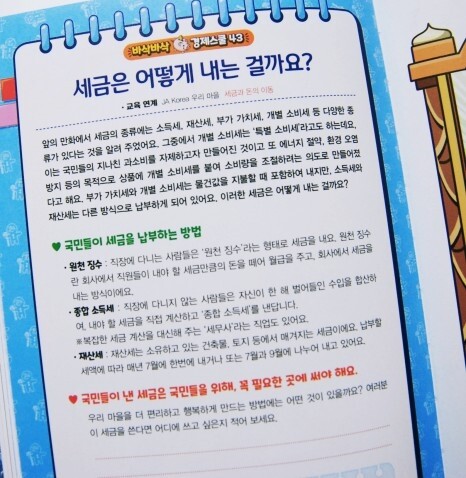 바삭바삭 경제스쿨 43
세금은 어떻게 내는 걸까요?
• 교육 연계 JA Korea 우리 마을 세금과 돈의 이동
앞의 만화에서 세금의 종류에는 소득세, 재산세, 부가 가치세, 개별 소비세 등 다양한 종
류가 있다는 것을 알려 주었어요. 그중에서 개별 소비세는 '특별 소비세'라고도 하는데요,
이는 국민들의 지나친 과소비를 자제하고자 만들어진 것이고 또 에너지 절약, 환경 오염
방지 등의 목적으로 상품에 개별 소비세를 붙여 소비량을 조절하려는 의도로 만들어졌
다고 해요. 부가 가치세와 개별 소비세는 물건값을 지불할 때 포함하여 내지만, 소득세와
재산세는 다른 방식으로 납부하게 되어 있어요. 이러한 세금은 어떻게 내는 걸까요?
♥ 국민들이 세금을 납부하는 방법
• 원천 징수 : 직장에 다니는 사람들은 '원천 징수'라는 형태로 세금을 내요. 원천 징수
란 회사에서 직원들이 내야 할 세금만큼의 돈을 떼어 월급을 주고, 회사에서 세금을
내는 방식이에요.
• 종합 소득세 : 직장에 다니지 않는 사람들은 자신이 한 해 벌어들인 수입을 합산하
여, 내야 할 세금을 직접 계산하고 '종합 소득세'를 낸답니다.
※복잡한 세금 계산을 대신해 주는 '세무사'라는 직업도 있어요.
• 재산세 : 재산세는 소유하고 있는 건축물, 토지 등에서 매겨지는 세금이에요. 납부할
세액에 따라 매년 7월에 한번에 내거나 또는 7월과 9월에 나누어 내고 있어요.
♥ 국민들이 낸 세금은 국민들을 위해, 꼭 필요한 곳에 써야 해요.
우리 마을을 더 편리하고 행복하게 만드는 방법에는 어떤 것이 있을까요? 여러분
이 세금을 쓴다면 어디에 쓰고 싶은지 적어 보세요.